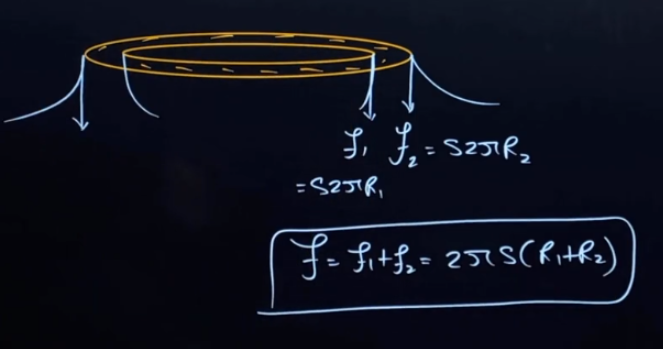 f₁ f₂ = S2πR₂
= S2πR₁
f = f₁+f₂ = 2πS(R₁+R₂)